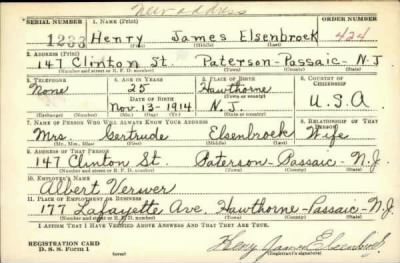 new address
SERIAL NUMBER 1. NAME (Print) ORDER NUMBER
1233 Henry James Elsenbroek 424
(First) (Middle) (Last)
2. ADDRESS (Print)
147 Clinton St. Paterson-Passaic-N.J
(Number and street or R. F. D. number) (Town) (County) (State)
3. TELEPHONE 4. AGE IN YEARS 5. PLACE OF BIRTH 6. COUNTRY OF CITIZENSHIP
None 25 Hawthorne
DATE OF BIRTH (Town or county)
Nov.-13-1914 N.J. U.S.A
(Exchange) (Number) (Mo.) (Day) (Yr.) (State or country)
7. NAME OF PERSON WHO WILL ALWAYS KNOW YOUR ADDRESS 8. RELATIONSHIP OF THAT PERSON
Mrs. Gertrude Elsenbroek Wife
(Mr., Mrs., Miss) (First) (Middle) (Last)
9. ADDRESS OF THAT PERSON
147 Clinton St. Paterson-Passaic-N.J.
(Number and street or R. F. D. number) (Town) (County) (State)
10. EMPLOYER'S NAME
Albert Verwer
11. PLACE OF EMPLOYMENT OR BUSINESS
177 Lafayette Ave. Hawthorne-Passaic-N.J.
(Number and street or R. F. D. number) (Town) (County) (State)
I AFFIRM THAT I HAVE VERIFIED ABOVE ANSWERS AND THAT THEY ARE TRUE.
REGISTRATION CARD
D. S. S. Form 1 (over) Henry James Elsenbroek
(Registrant's signature)